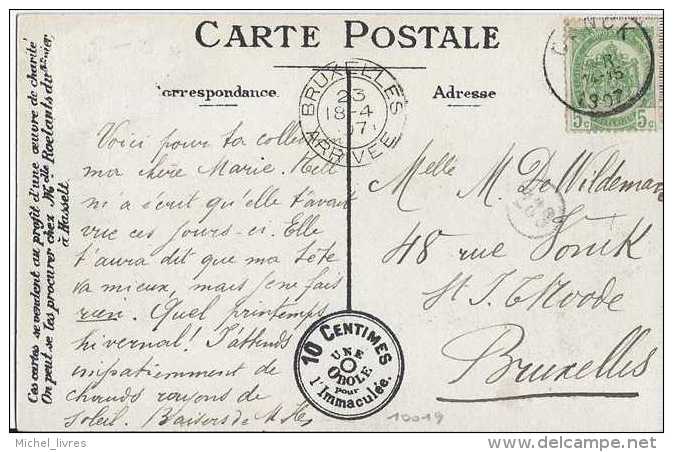 CARTE POSTALE
Correspondance
Adresse
BRUXELLES
23
18-4
07
ARRIVÉE
R
14-15
1907
5c 5c
Ces cartes se vendent au profit d'une œuvre de charité
On peut se les procurer chez Melle Roelants du Vivier
à Hasselt.
Voici pour ta collec
ma chère Marie.
m'a écrit qu'elle t'avait
vue ces jours-ci. Elle
t'aura dit que ma tête
va mieux, mais je ne fais
rien. Quel printemps
hivernal! J'attends
impatiemment de
chauds rayons de
soleil. Baisers de
Melle M. De Wildeman
48 rue Vonck
St J. t. Noode
Bruxelles
10 CENTIMES
UNE
OBOLE
pour
l'Immaculée.
10019
Michel_livres
delcampe.net